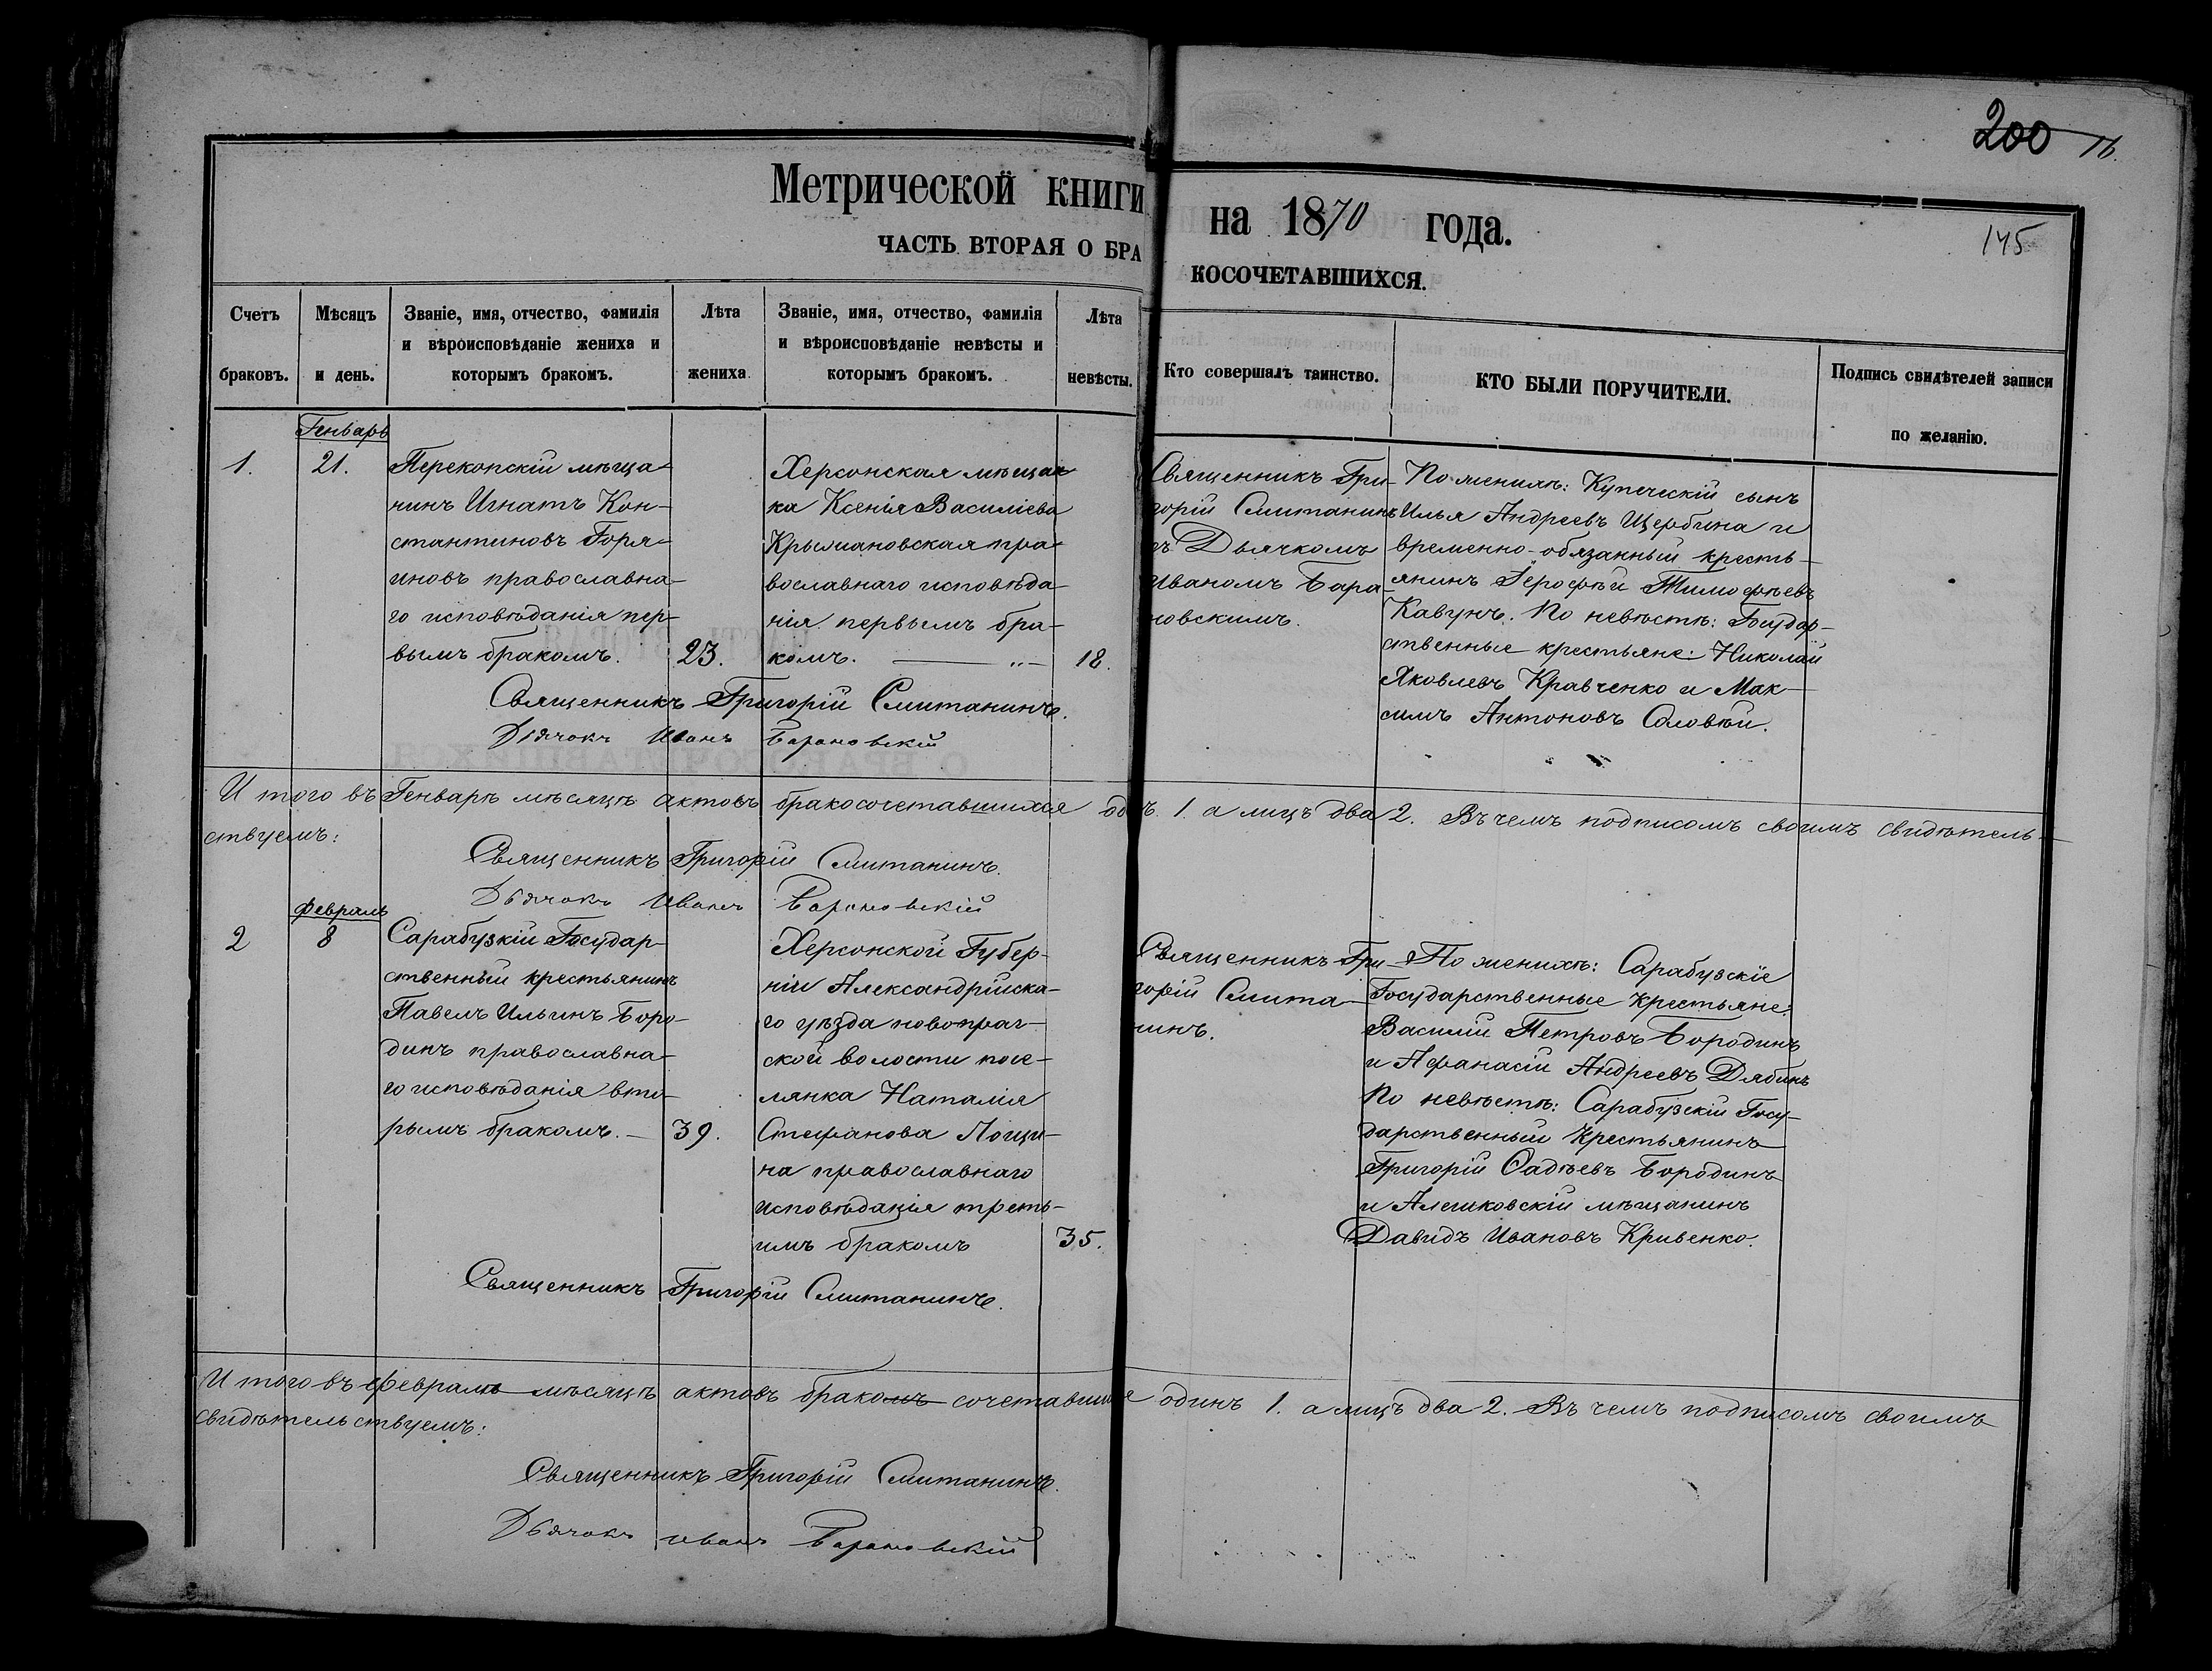 200 16.
145
Метрической книги на 1870 года.
ЧАСТЬ ВТОРАЯ О БРАКОСОЧЕТАВШИХСЯ.
Счетъ браковъ.
Мѣсяцъ и день.
Званіе, имя, отчество, фамилія
и вѣроисповѣданіе жениха и
которымъ бракомъ.
Лѣта жениха
Званіе, имя, отчество, фамилія
и вѣроисповѣданіе невѣсты и
которымъ бракомъ.
Лѣта невѣсты.
Кто совершалъ таинство.
КТО БЫЛИ ПОРУЧИТЕЛИ.
Подпись свидѣтелей записи
по желанію.
Генварь
1.
21.
Перекопскій мѣща-
нинъ Игнатъ Кон-
стантиновъ Горя-
иновъ православна-
го исповѣданія пер-
вымъ бракомъ.
23.
Херсонская мѣщан-
ка Ксенія Василіева
Крыжановская пра-
вославнаго исповѣда-
нія первымъ бра-
комъ.
18.
Священникъ Гри-
горій Смитанинъ
съ Дьячкомъ
Иваномъ Бара-
новскимъ.
По женихѣ: Купеческій сынъ
Илья Андреевъ Щербина и
временно-обязанный кресть-
янинъ Іерофѣй Тимофѣевъ
Кавунъ. По невѣстѣ: Государ-
ственные крестьяне: Николай
Яковлевъ Кравченко и Мак-
симъ Антоновъ Соловѣй.
Священникъ Григорій Смитанинъ.
Дьячокъ Иванъ Барановскій
Итого въ Генварѣ мѣсяцѣ актовъ бракосочетавшихся одъ 1. а лицъ два 2. Въ чемъ подписомъ своимъ свидѣтель-
ствуемъ:
Священникъ Григорій Смитанинъ.
Дьячокъ Иванъ Барановскій
Февраль
2
8
Сарабузкій Государ-
ственный крестьянинъ
Павелъ Ильинъ Боро-
динъ православна-
го исповѣданія вто-
рымъ бракомъ.
39.
Херсонской Губер-
ніи Александрійска-
го уѣзда новопраг-
ской волости посе-
лянка Наталія
Стефанова Лощи-
на православнаго
исповѣданія треть-
имъ бракомъ
35.
Священникъ Гри-
горій Смита-
нинъ.
По женихѣ: Сарабузскіе
Государственные крестьяне:
Василій Петровъ Бородинъ
и Афанасій Андреевъ Дябинъ
По невѣстѣ: Сарабузскій Госу-
дарственный Крестьянинъ
Григорій Фадѣевъ Бородинъ
и Алешковскій мѣщанинъ
Давидъ Ивановъ Кривенко.
Священникъ Григорій Смитанинъ.
Итого въ Февралѣ мѣсяцѣ актовъ бракомъ сочетавшихся одинъ 1. а лицъ два 2. Въ чемъ подписомъ своимъ
свидѣтельствуемъ:
Священникъ Григорій Смитанинъ.
Дьячокъ Иванъ Барановскій